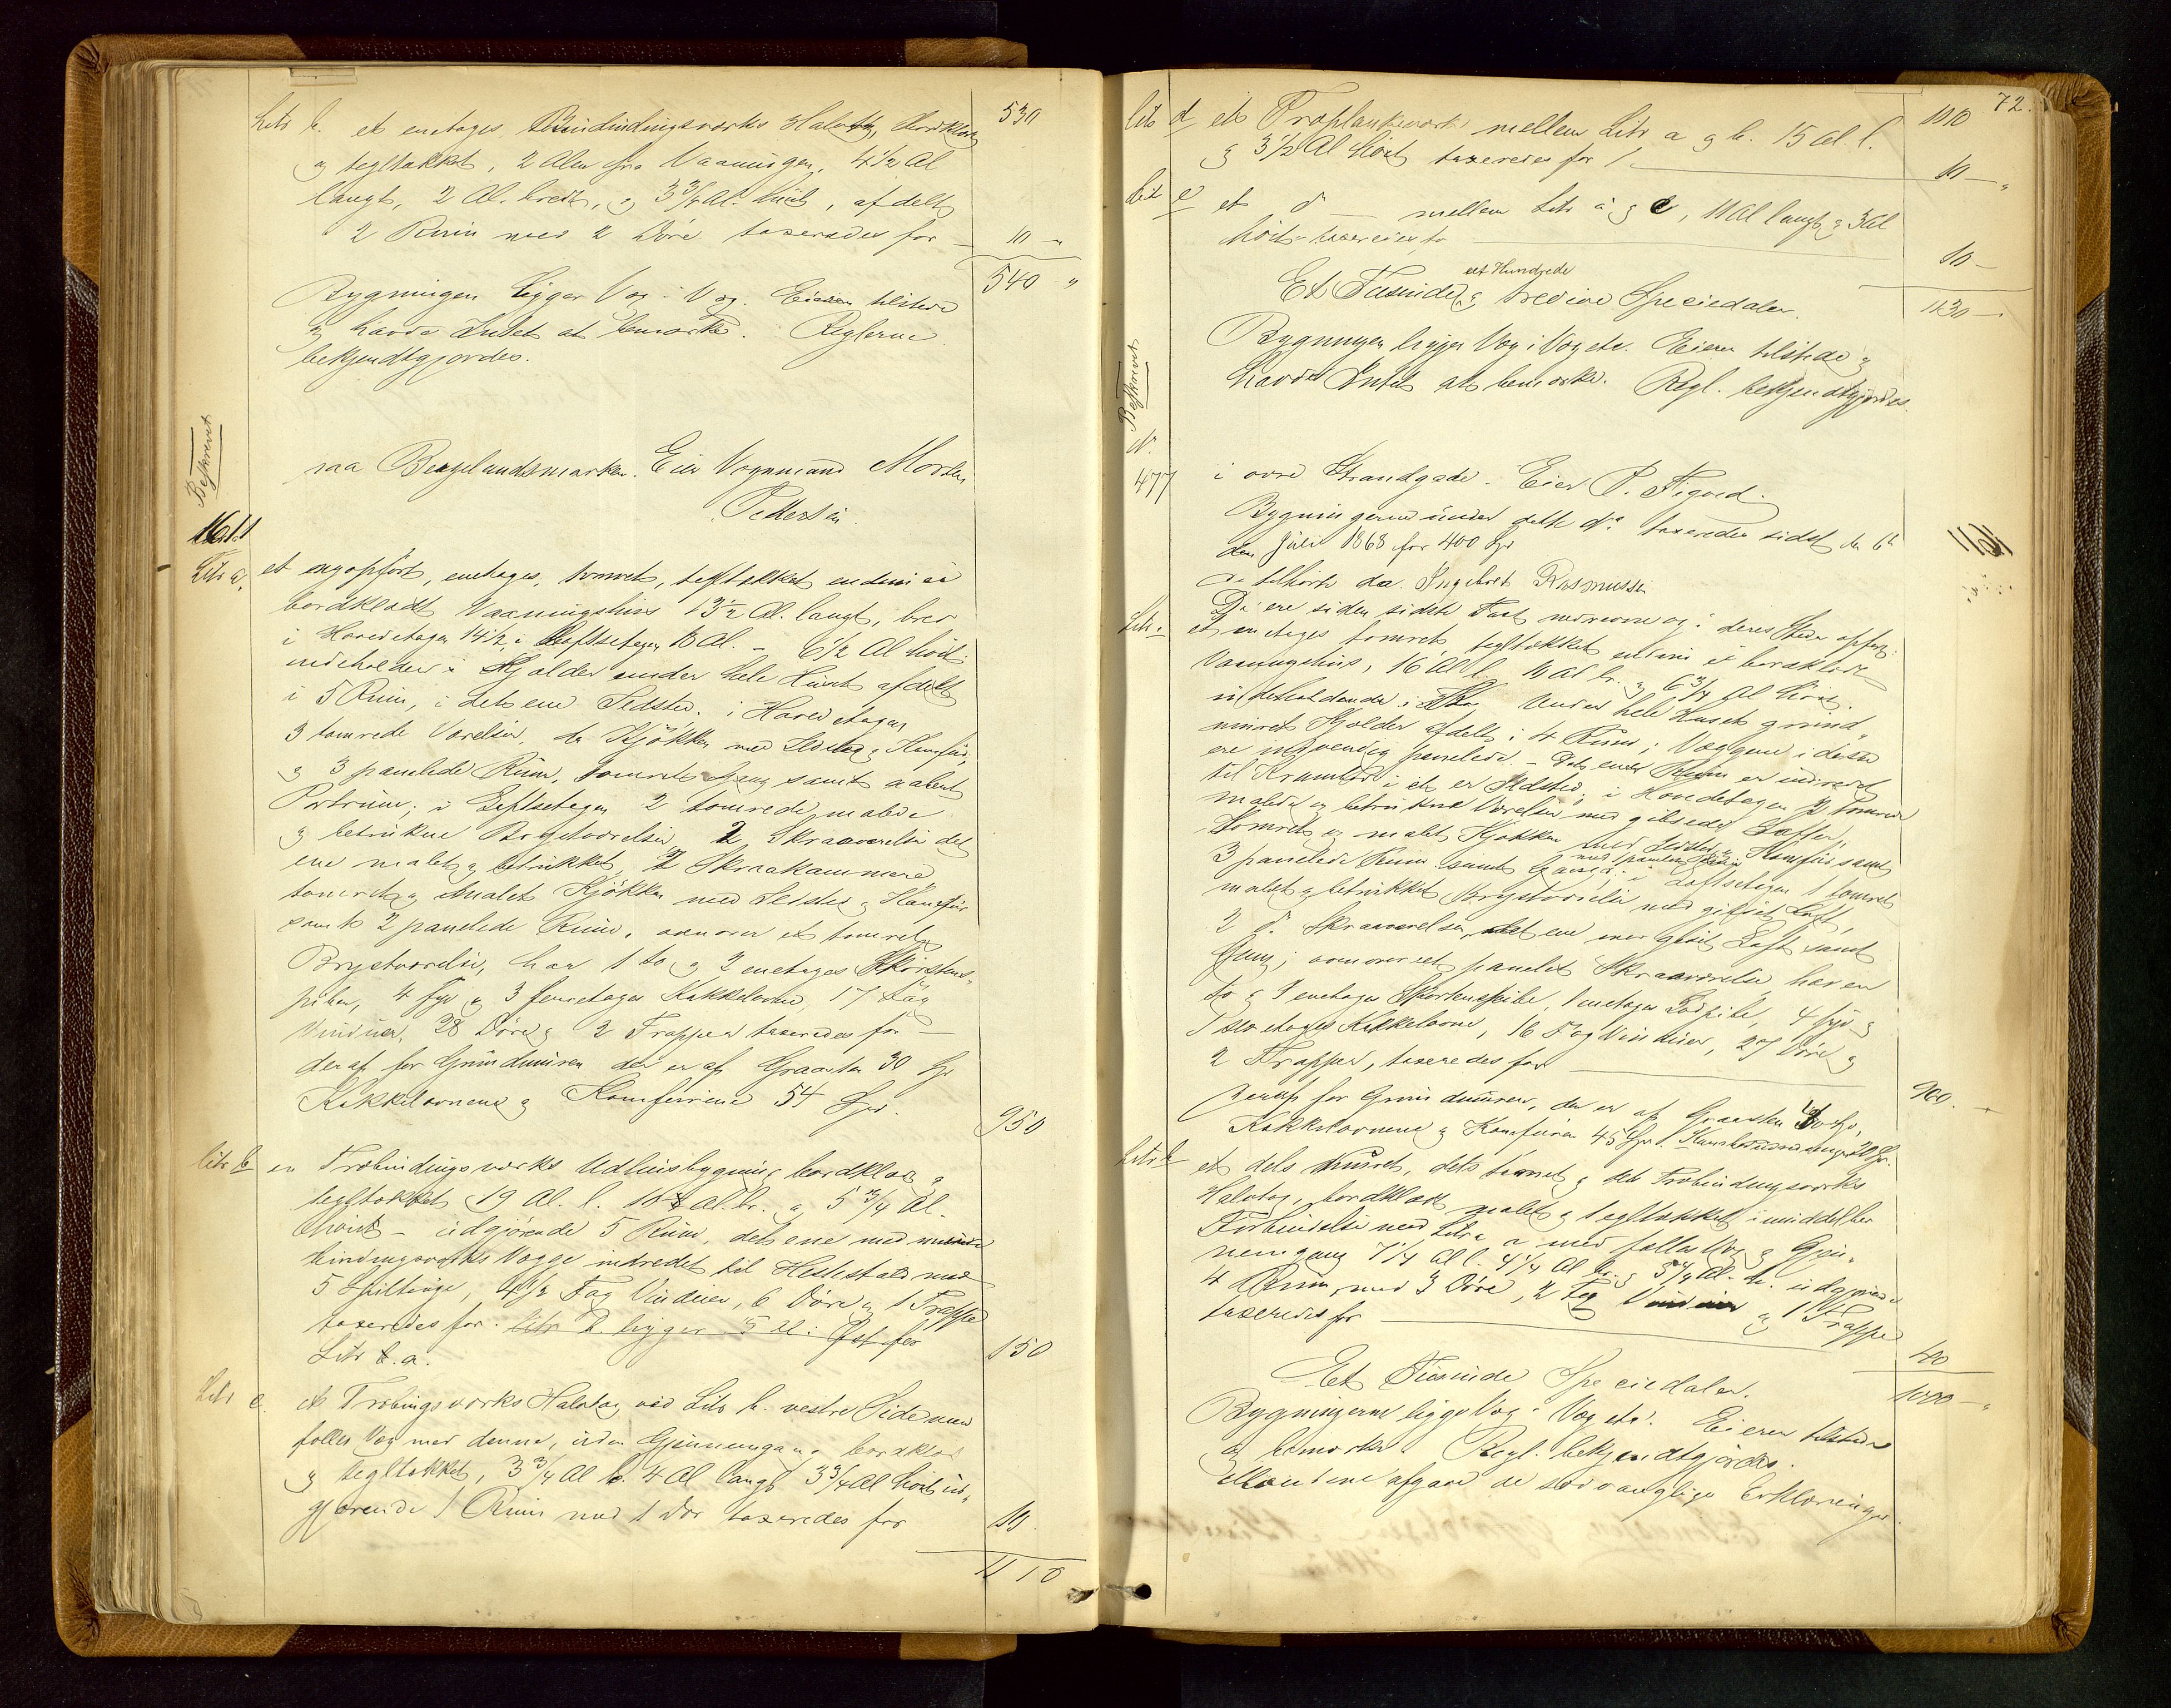 530
Litr b. et enetages Bindingsværks Halvtag, bordklædt
og tegltækket, 2 Alen fra Vaaningen, 4 1/2 Al
langt, 2 Al. bredt, og 3 3/4 Al. höit, afdelt
2 Rum med 2 Döre taxeredes for — 10 "
540 "
Bygningen ligger Væg i Væg. Eieren tilstede
og havde Intet at bemærke. Reglerne
bekjendtgjordes.
Beskrevet
paa Bergelandsmarken. Eier Vognmand Morten
Pettersen
1611
Litr a. et nyopfört, enetages, tömret, tegltækket endvidere
bordklædt Vaaningshus 13 1/2 Al. langt, bred
i Hovedetagen 14 1/2, i Loftsetagen 13 Al. - 6 1/2 Al höit
indeholder i Kjelder under hele Huset afdelt
i 5 Rum, i det ene Ildsted. i Hovedetagen
3 tömrede Værelser, da Kjökken med Ildsted og Komfur,
og 3 panelede Rum, tömret Gang samt aabent
Portrum; i Loftsetagen 2 tömrede malede
og betrukne Brystværelser 2 Skraaværelser det
ene malet og betrukket, 2 Skraakammere
tömret og malet Kjökken med Ildsted og Komfur
samt 2 panelede Rum, ovenover et tömret
Brystværelse, har 1 to og 2 enetages Skorstens-
piber, 4 fyr og 3 fleretages Kakkelovne, 17 Fag
Vinduer, 28 Döre og 2 Trapper taxeredes for —
deraf for Grundmuren der er af Graasten 30 Spd
Kakkelovnene og Komfurene 54 Spd. 950
Litr b en Træbindingsværks Udhusbygning bordklædt og
tegltækket 19 Al. l. 10 Al. br. og 5 3/4 Al.
höit - udgjörende 5 Rum, det ene med
bindingsværks Vægge indredet til Hestestald med
5 Spiltauge, 4 1/2 Fag Vinduer, 6 Döre og 1 Trappe
taxeredes for. litr b ligger 5 Al. Öst for
Litr a. 150
Litr c. et Træbingsværks Halvtag ved Litr b. vestre Side med
fælles Væg med denne, uden Gjennemgang bordklædt
og tegltækket, 3 3/4 Al b. 4 Al langt 3 3/4 Al höit ud-
gjörende 1 Rum med 1 Dör taxeredes for 10
1110
72.
1110
Litr d et Træplankeværk mellem Litr a og b. 15 Al l.
og 3 1/2 Al höit taxeredes for 10 — "
Litr e et do — mellem Litr a og c, 11 Al langt og 3 Al
höit taxeredes for 10 —
eet Hundrede
Et Tusinde og tredive Speciedaler. 1130 —
Bygningen ligger Væg i Væg etc. Eieren tilstede og
havde Intet at bemærke. Regl. bekjendtgjordes.
Beskrevet
N.
477 i övre Strandgade. Eier P. Figved.
Bygningerne under dette No taxeredes sidst den 6te
den Juli 1868 for 400 Spd
og tilhörte da. Ingebret Rasmussen
1611
De ere siden sidste Taxt nedrevne og i deres Sted opfört:
Litr a et enetages tömret, tegltækket endvidere bordklædt
Vaaningshus, 16 Al l. 10 Al br. og 6 3/4 Al höit.
indeholdende i Under hele Huset grund-
muret Kjelder afdelt i 4 Rum; Væggene i disse
ere indvendig panelede. - Det ene Rum er indredet
til Krambod i et er Ildsted; i Hovedetagen 2 tömrede
malede og betrukne Værelser med gibsede Lofter,
tömret og malet Kjökken med Ildsted og Komfur samt
3 panelede Rum samt Gang; i Loftsetagen 1 tömret
malet og betrukket Brystværelse med gibset Loft,
2 do Skraaværelser, det ene med gibset Loft samt
Gang; ovenover et panelet Skraaværelse har en
to og 1 enetages Skorstenspibe, 1 enetages Lodpibe, 4 fyr og
1 fleretages Kakkelovne, 16 Fag Vinduer, 27 Döre og
2 Trapper, taxeredes for 960 —
deraf for Grundmuren, der er af Graasten Spd,
Kakkelovnene og Komfuren 45 Spd. Kramboddindredningen 20 Spd.
Litr b et dels muret, dels tömret og dels Træbindingsværks
Halvtag, bordklædt malet og tegltækket i umiddelbar
Forbindelse med Litr a med fælles Væg og Gjen-
nemgang 7 1/4 Al l. 4 1/4 Al br. og 5 3/4 Al. h. udgjörende
4 Rum, med 3 Döre, 2 Fag Vinduer og 1 Trappe
taxeredes for 40
Et Tusinde Speciedaler. 1000 — "
Bygningerne ligge Væg i Væg etc. Eieren tilstede
og bemærke. Regl. bekjendtgjordes.
Mændene afgave de sædvanlige Erklæringer.